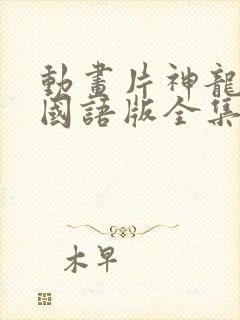 動畫片神龍
國語版全集
木早